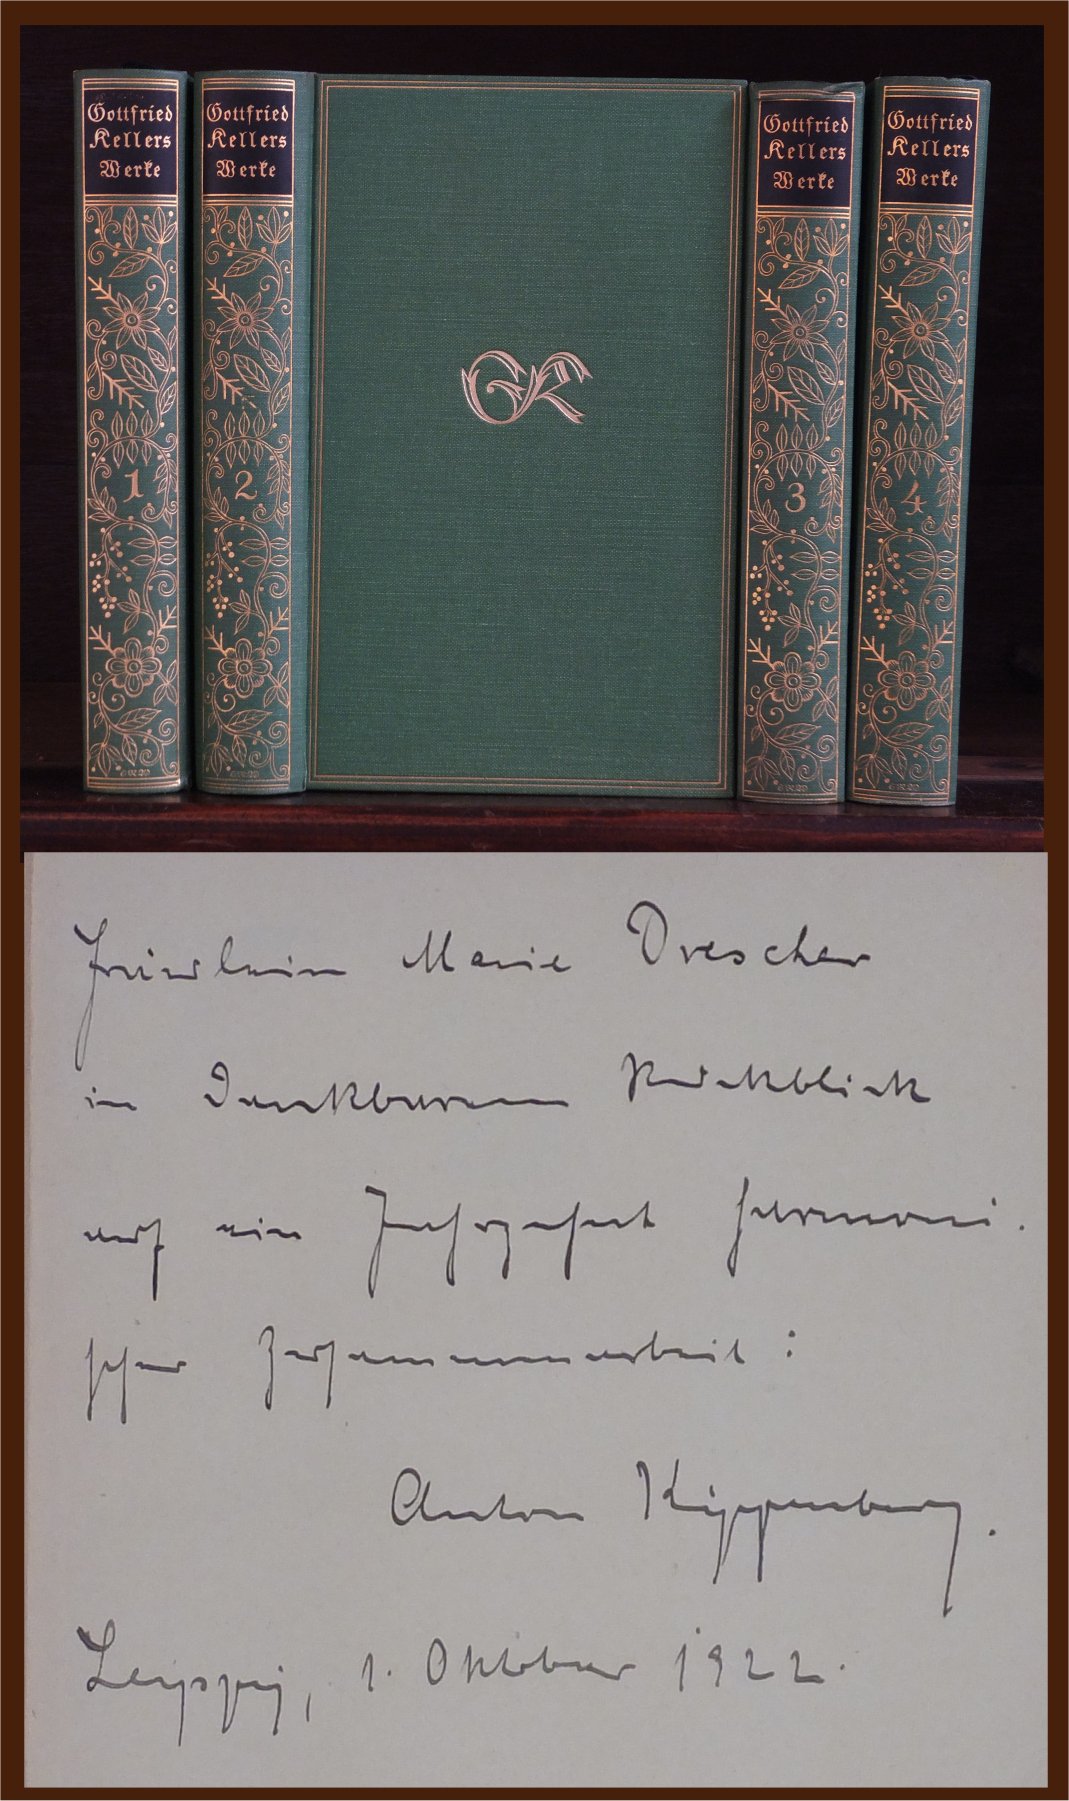 Gottfried
Kellers
Werke
1
Gottfried
Kellers
Werke
2
GK
Gottfried
Kellers
Werke
3
Gottfried
Kellers
Werke
4
Fräulein Marie Drescher
in dankbarem Rückblick
auf ein Jahrzehnt harmoni-
scher Zusammenarbeit:
Anton Kippenberg.
Leipzig, 1. Oktober 1922.